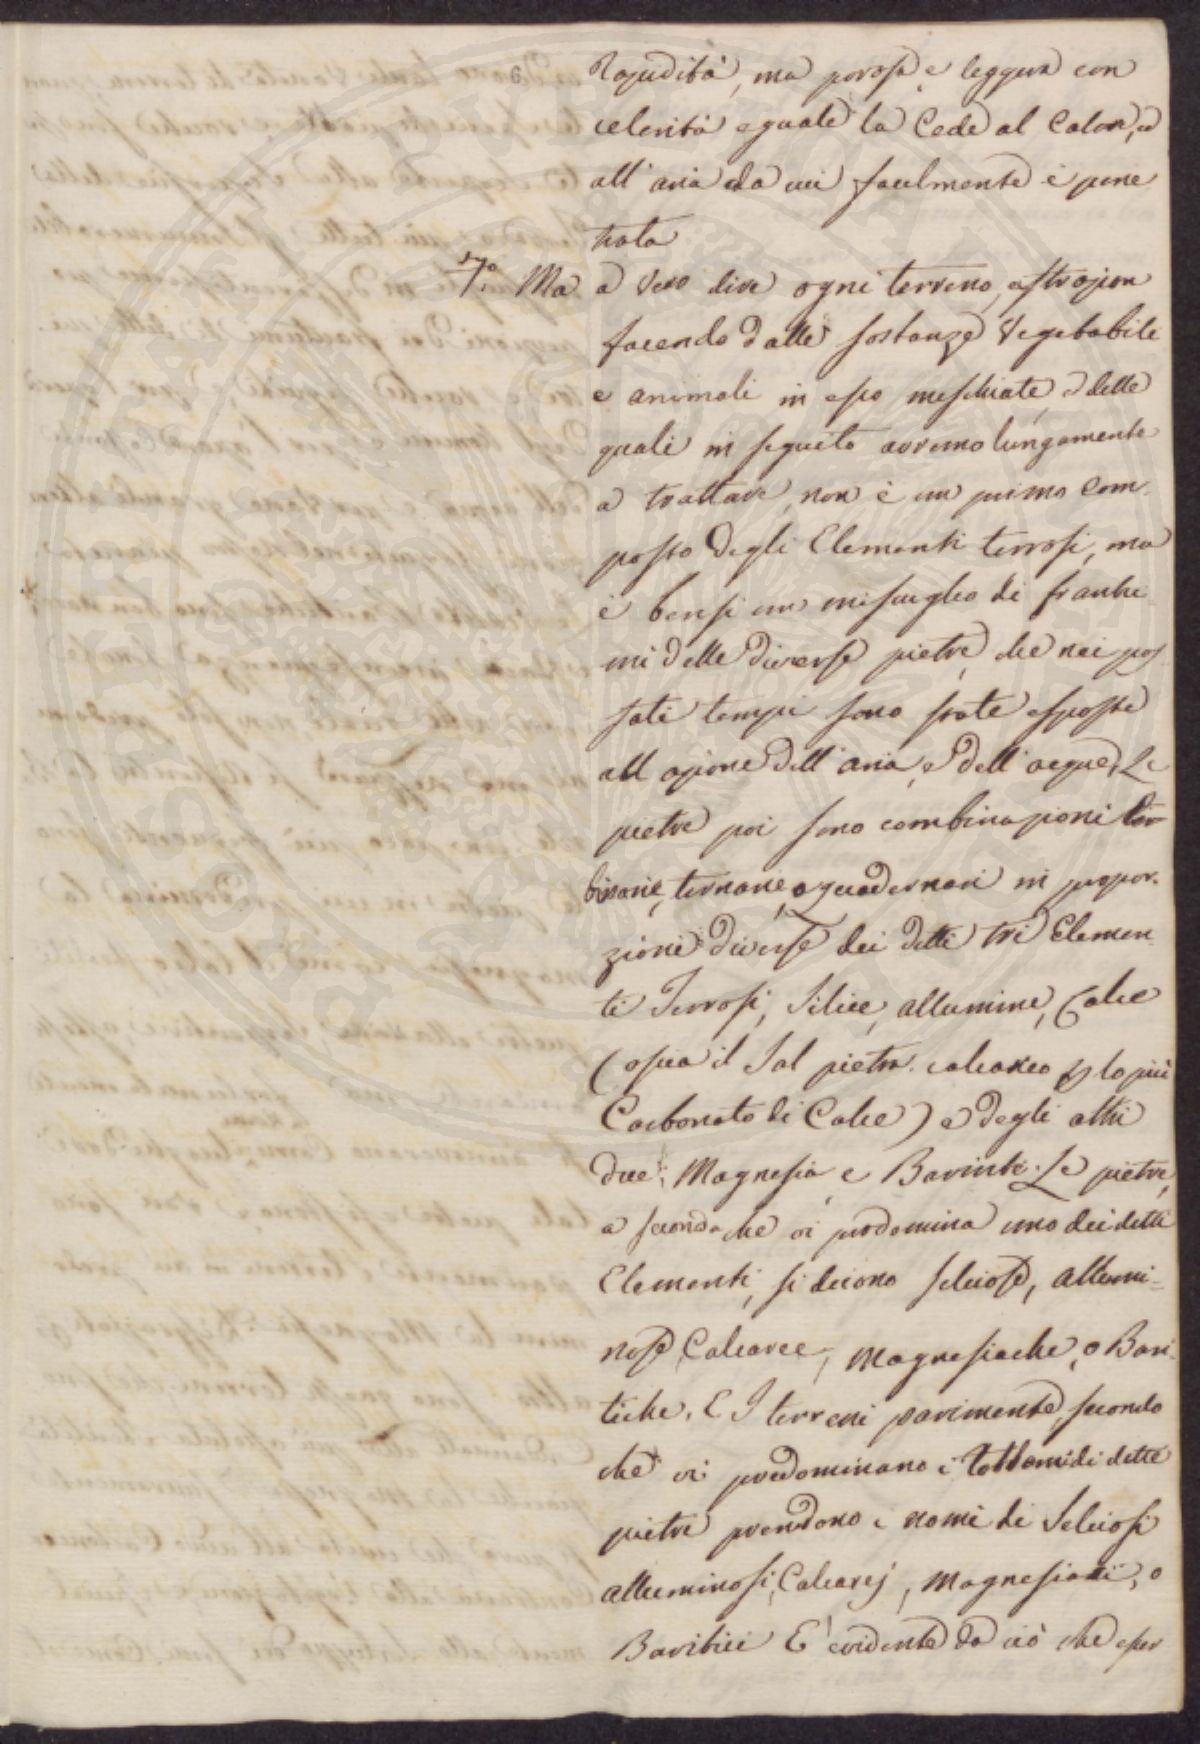 6
Rapidità, ma porosa e leggiera con
celerità eguale la Cede al Calore, e
all'aria da cui facilmente è pene
trata
17.° Ma a vero dire ogni terreno, astrazion
facendo dalle sostanze Vegetabile
e animali in esso meschiate, e delle
quali in seguito avremo lungamente
a trattare, non è un primo com-
posto degli Elementi terrosi, ma
è bensì un miscuglio di frantu
mi delle diverse pietre, che nei pas
sati tempi sono state esposte
all'azione dell'aria, e dell'acque. Le
pietre poi sono combinazioni
binarie, ternarie, o quadernari in propor-
zione diverse dei detti tri Elemen
ti Terrosi, Silice, allumine, Calce
(ossia il Sal pietra calcareo lo più
Carbonato di Calce) e degli altri
due: Magnesia, e Barinte. Le pietre,
a seconda che vi predomina uno dei detti
Elementi, si dicono selciose, allumi-
nose, Calcaree, Magnesiache, o Bari
tiche. E I terreni parimente, secondo
che vi predominano i rottami di dette
pietre prendono i nomi di Selciosi
alluminosi, Calcarej, Magnesiaci, o
Baritici E' evidente da ciò che esser